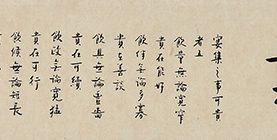 宴集之事可貴
者五
飲量無論寬窄
貴在能好
飲伴無論多寡
貴在善談
飲具無論豐嗇
貴在可繼
飲政無論寬猛
貴在可行
飲候無論短長